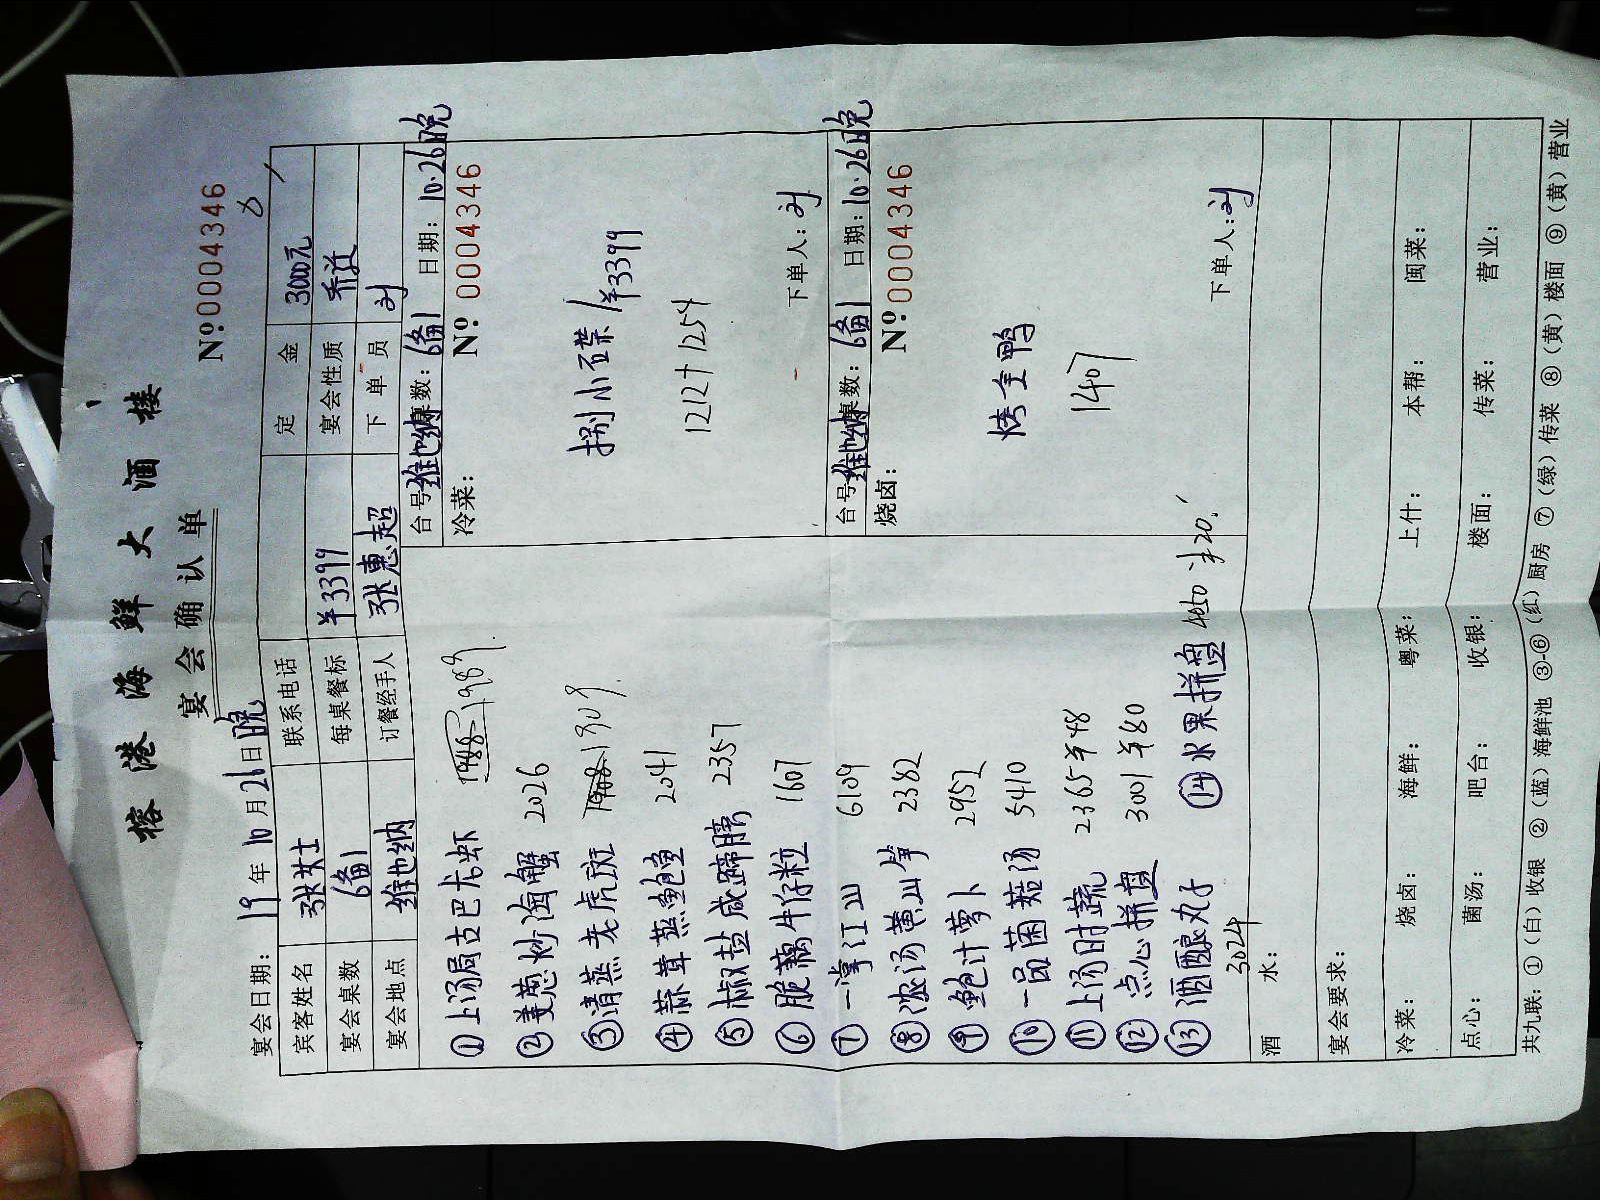 榕港海鲜大酒楼
宴会确认单
№:0004346
宴会日期: 19年10月26日晚
宾客姓名 张女士 联系电话 定金 3000元
宴会桌数 6备1 每桌餐标 ¥3399 宴会性质 乔迁
宴会地点 维也纳 订餐经手人 张惠超 下单员 刘
①上汤焗古巴龙虾 1988 1989
②姜葱炒海蟹 2026
③清蒸老虎斑 1908 1309
④蒜茸蒸鲍鱼 2041
⑤椒盐咸蹄膀 2357
⑥脆藕牛仔粒 1607
⑦一掌江山 6109
⑧浓汤黄山笋 2382
⑨鲍汁萝卜 2952
⑩一品菌菇汤 5410
⑪上汤时蔬 2365 ¥48
⑫点心拼盘 3001 ¥80
⑬酒酿丸子 3024
⑭水果拼盘 4050 ¥20
台号 维也纳 桌数: 6备1 日期: 10.26晚
冷菜: №:0004346
捌小碟 / ¥3399
1212+1254
下单人: 刘
台号 维也纳 桌数: 6备1 日期: 10.26晚
烧卤: №:0004346
烤全鸭
1407
下单人: 刘
酒水:
宴会要求:
冷菜: 烧卤: 海鲜: 粤菜: 上什: 本帮: 闽菜:
点心: 菌汤: 吧台: 收银: 楼面: 传菜: 营业:
共九联: ①(白)收银 ②(蓝)海鲜池 ③-⑥(红)厨房 ⑦(绿)传菜 ⑧(黄)楼面 ⑨(黄)营业